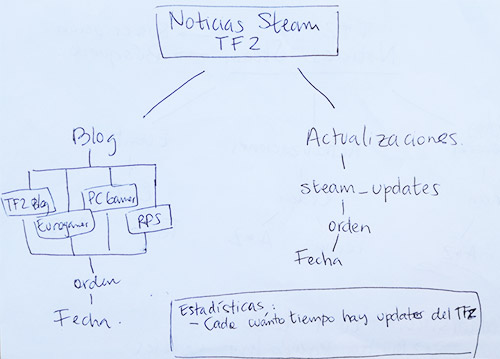 Noticias Steam
TF2
Blog
TF2 Blog
Eurogamer
PC Gamer
RPS
orden
Fecha.
Actualizaciones.
steam_updates
orden
Fecha
Estadísticas:
- Cada cuánto tiempo hay updates del TF2